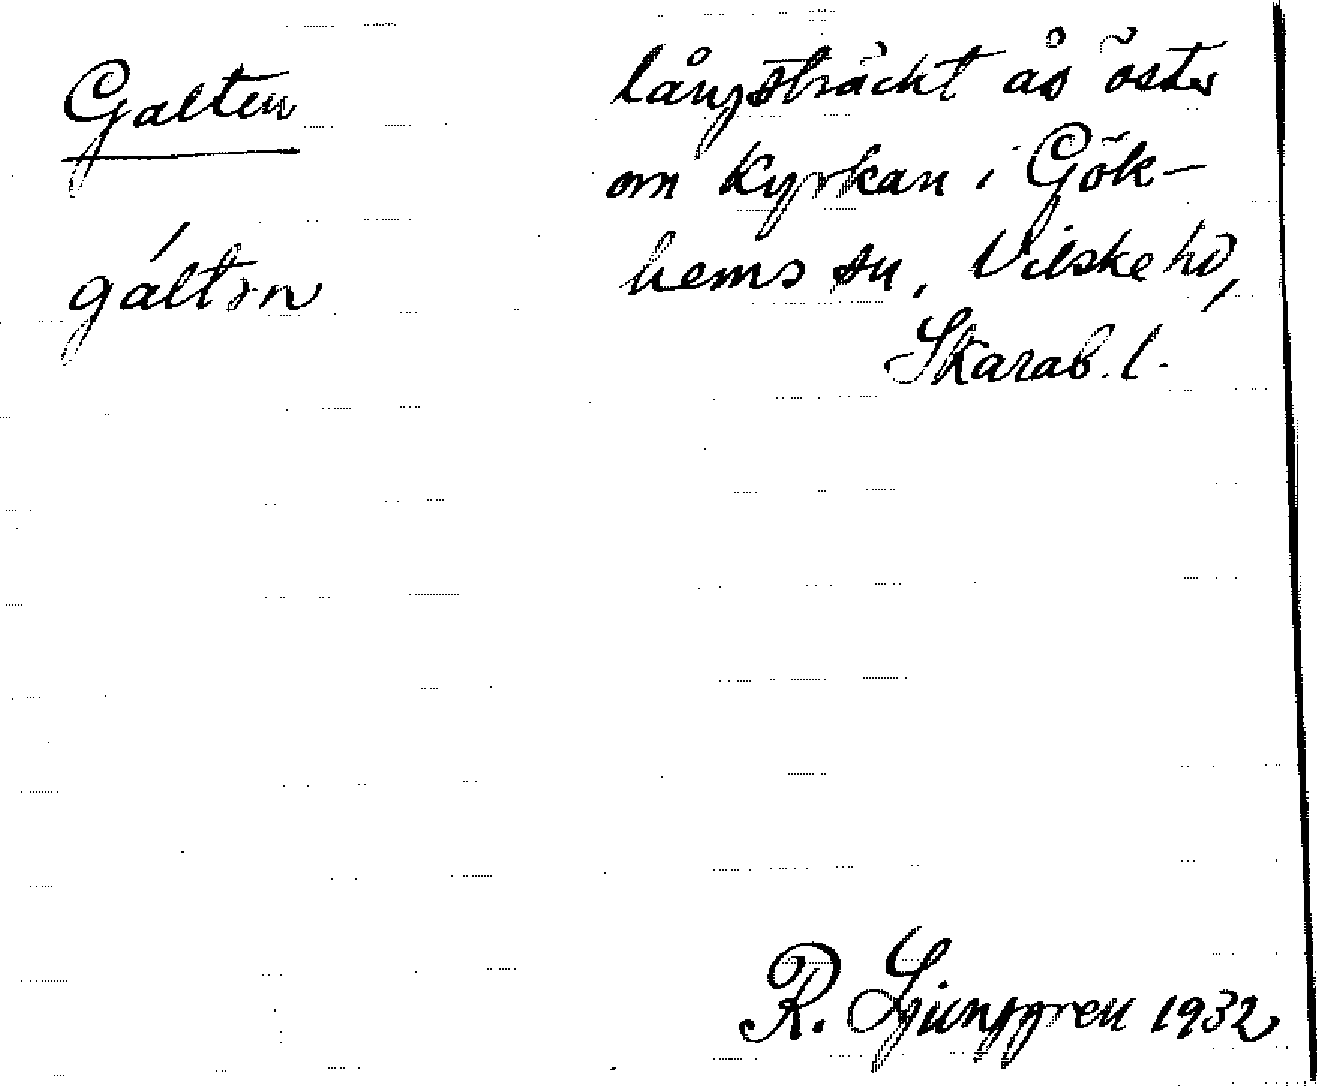 Galten
gáltən
långsträckt ås öster
om kyrkan i Gök-
hems sn, Vilske hd,
Skarab. l.
R. Ljunggren 1932